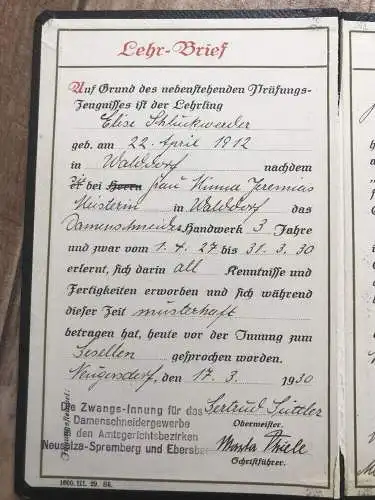 Lehr-Brief
Auf Grund des nebenstehenden Prüfungs-
Zeugnisses ist der Lehrling
Elise Schluckwerder
geb. am 22. April 1912
in Walddorf nachdem
sie bei Herrn Frau Minna Jeremias
Meisterin in Walddorf das
Damenschneider Handwerk 3 Jahre
und zwar vom 1.4.27 bis 31.3.30
erlernt, sich darin all Kenntnisse und
Fertigkeiten erworben und sich während
dieser Zeit musterhaft
betragen hat, heute vor der Innung zum
Gesellen gesprochen worden.
Neugersdorf, den 17.3. 1930
Innungsstempel:
Die Zwangs-Innung für das
Damenschneidergewerbe
in den Amtsgerichtsbezirken
Neusalza-Spremberg und Ebersba
Gertrud
Obermeister.
Martha Thiele
Schriftführer.
1600. III. 29. St.